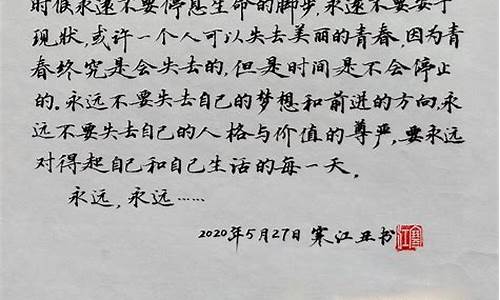 时候永远不要停息生命的脚步，永远不要安于
现状，或许一个人可以失去美丽的青春，因为青
春终究是会失去的，但是时间是不会停止
的。永远不要失去自己的梦想和前进的方向，永
远不要失去自己的人格与价值的尊严，要永远
对得起自己和自己生活的每一天。
永远，永远……
2020年5月27日 寒江丑书